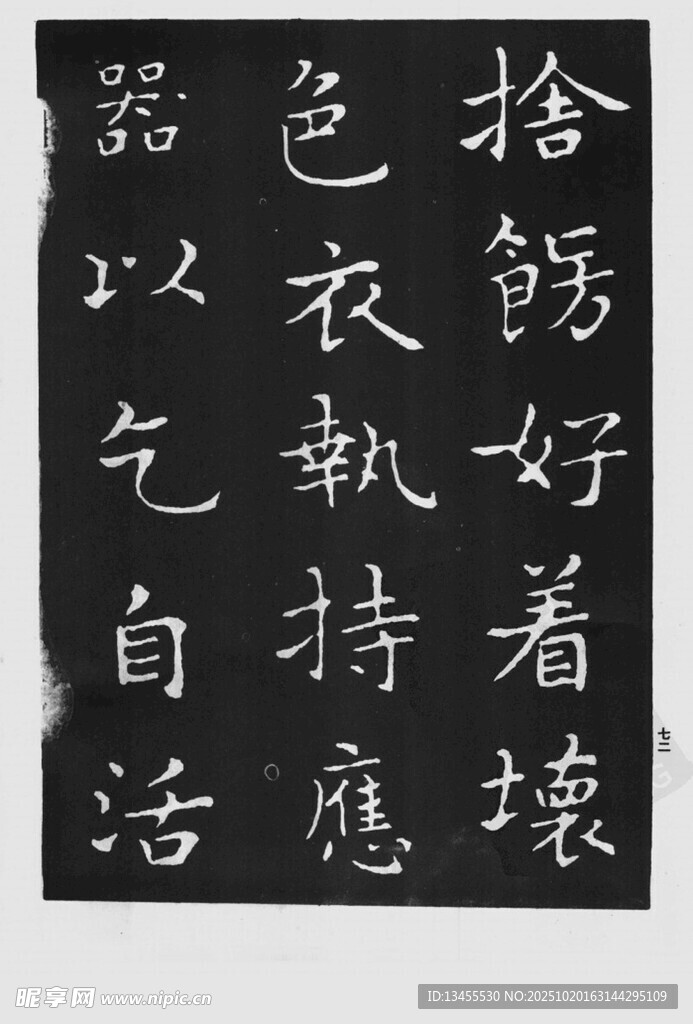 捨餝好着壞
色衣執持應
器以乞自活
七二
昵享网 www.nipic.cn
ID:13455530 NO:20251020163144295109